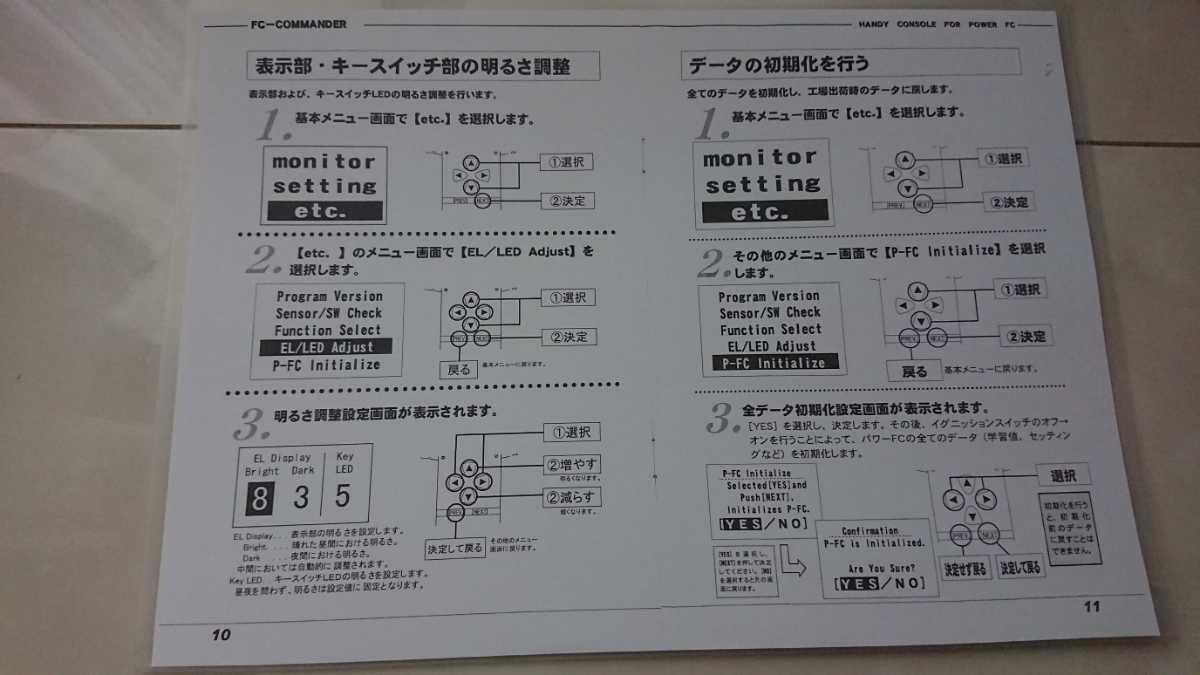 FC-COMMANDER
表示部・キースイッチ部の明るさ調整
表示部および、キースイッチLEDの明るさ調整を行います。
1. 基本メニュー画面で【etc.】を選択します。
monitor
setting
etc.
①選択
②決定
PREV.
NEXT
2. 【etc. 】のメニュー画面で【EL/LED Adjust】を
選択します。
Program Version
Sensor/SW Check
Function Select
EL/LED Adjust
P-FC Initialize
①選択
②決定
PREV.
NEXT
戻る
基本メニューに戻ります。
3. 明るさ調整設定画面が表示されます。
EL Display
Key
Bright Dark
LED
8 3 5
①選択
②増やす
明るくなります。
②減らす
暗くなります。
PREV.
NEXT
決定して戻る
その他のメニュー
画面に戻ります。
EL Display... 表示部の明るさを設定します。
Bright. ... 晴れた昼間における明るさ。
Dark ... 夜間における明るさ。
中間においては自動的に調整されます。
Key LED. キースイッチLEDの明るさを設定します。
昼夜を問わず、明るさは設定値に固定となります。
10
HANDY CONSOLE FOR POWER FC
データの初期化を行う
全てのデータを初期化し、工場出荷時のデータに戻します。
1. 基本メニュー画面で【etc.】を選択します。
monitor
setting
etc.
①選択
②決定
PREV.
NEXT
2. その他のメニュー画面で【P-FC Initialize】を選択
します。
Program Version
Sensor/SW Check
Function Select
EL/LED Adjust
P-FC Initialize
①選択
②決定
PREV.
NEXT
戻る
基本メニューに戻ります。
3. 全データ初期化設定画面が表示されます。
[YES]を選択し、決定します。その後、イグニッションスイッチのオフ→
オンを行うことによって、パワーFCの全てのデータ(学習値、セッティン
グなど)を初期化します。
P-FC Initialize
Selected[YES]and
Push[NEXT],
Initializes P-FC.
[YES/NO]
[YES]を選択し、
[NEXT]を押して決定
してください。[NO]
を選択すると元の画
面に戻ります。
Confirmation
P-FC is Initialized.
Are You Sure?
[YES/NO]
選択
PREV.
NEXT
決定せず戻る
決定して戻る
初期化を行う
と、初期化
前のデータ
に戻すことは
できません。
11